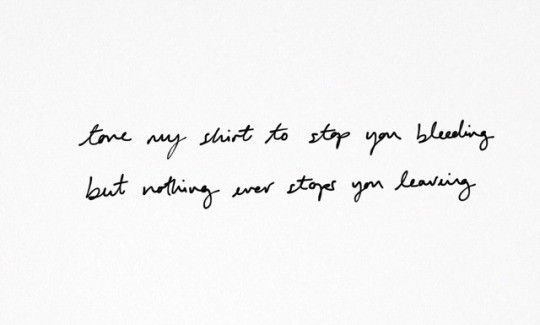 tore my shirt to stop you bleeding
but nothing ever stops you leaving